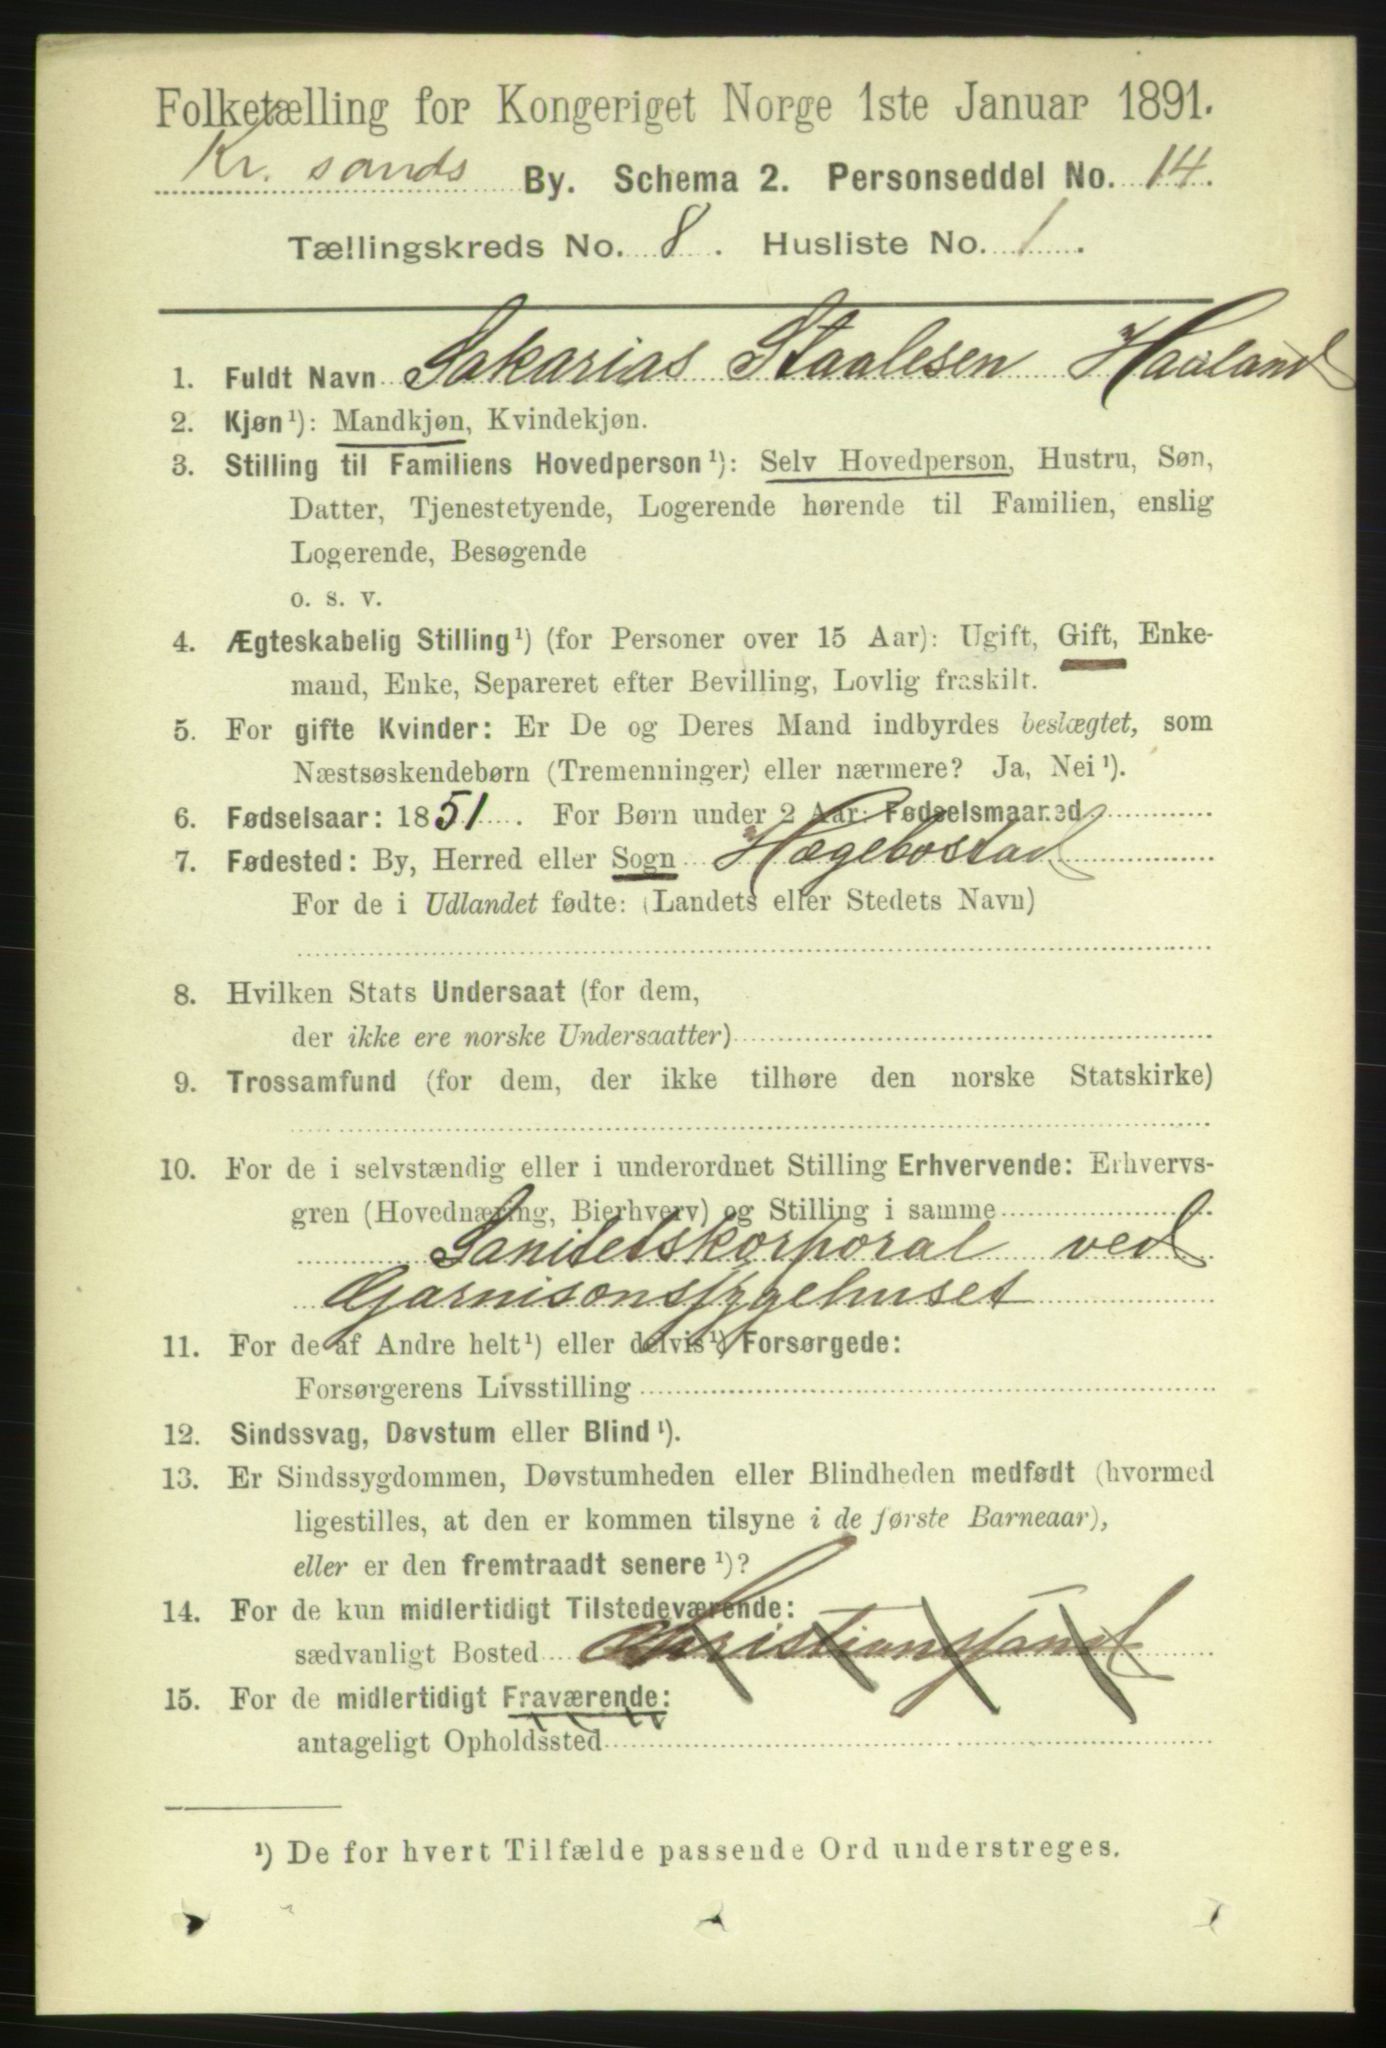 Folketælling for Kongeriget Norge 1ste Januar 1891.
Kr. sands By. Schema 2. Personseddel No. 14.
Tællingskreds No. 8. Husliste No. 1.
1. Fuldt Navn Sakarias Staalesen Haaland
2. Kjøn¹): Mandkjøn, Kvindekjøn.
3. Stilling til Familiens Hovedperson¹): Selv Hovedperson, Hustru, Søn,
Datter, Tjenestetyende, Logerende hørende til Familien, enslig
Logerende, Besøgende
o. s. v.
4. Ægteskabelig Stilling¹) (for Personer over 15 Aar): Ugift, Gift, Enke-
mand, Enke, Separeret efter Bevilling, Lovlig fraskilt.
5. For gifte Kvinder: Er De og Deres Mand indbyrdes beslægtet, som
Næstsøskendebørn (Tremenninger) eller nærmere? Ja, Nei¹).
6. Fødselsaar: 1851. For Børn under 2 Aar: Fødselsmaaned
7. Fødested: By, Herred eller Sogn Hægebostad
For de i Udlandet fødte: (Landets eller Stedets Navn)
8. Hvilken Stats Undersaat (for dem,
der ikke ere norske Undersaatter)
9. Trossamfund (for dem, der ikke tilhøre den norske Statskirke)
10. For de i selvstændig eller i underordnet Stilling Erhvervende: Erhvervs-
gren (Hovednæring, Bierhverv) og Stilling i samme
Sanitetskorporal ved
Garnisonssygehuset
11. For de af Andre helt¹) eller delvis¹) Forsørgede:
Forsørgerens Livsstilling
12. Sindssvag, Døvstum eller Blind¹).
13. Er Sindssygdommen, Døvstumheden eller Blindheden medfødt (hvormed
ligestilles, at den er kommen tilsyne i de første Barneaar),
eller er den fremtraadt senere¹)?
14. For de kun midlertidigt Tilstedeværende:
sædvanligt Bosted Christianssand
15. For de midlertidigt Fraværende:
antageligt Opholdssted
¹) De for hvert Tilfælde passende Ord understreges.